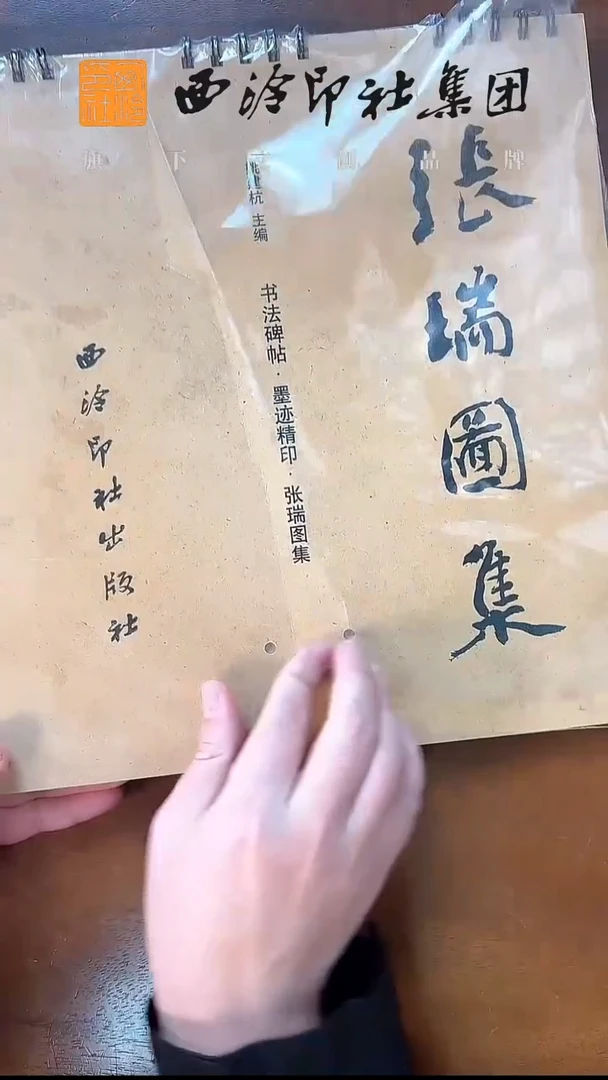 西泠印社集团
旗下书画品牌
張瑞圖集
杭 主编
书法碑帖·墨迹精印·张瑞图集
西泠印社出版社